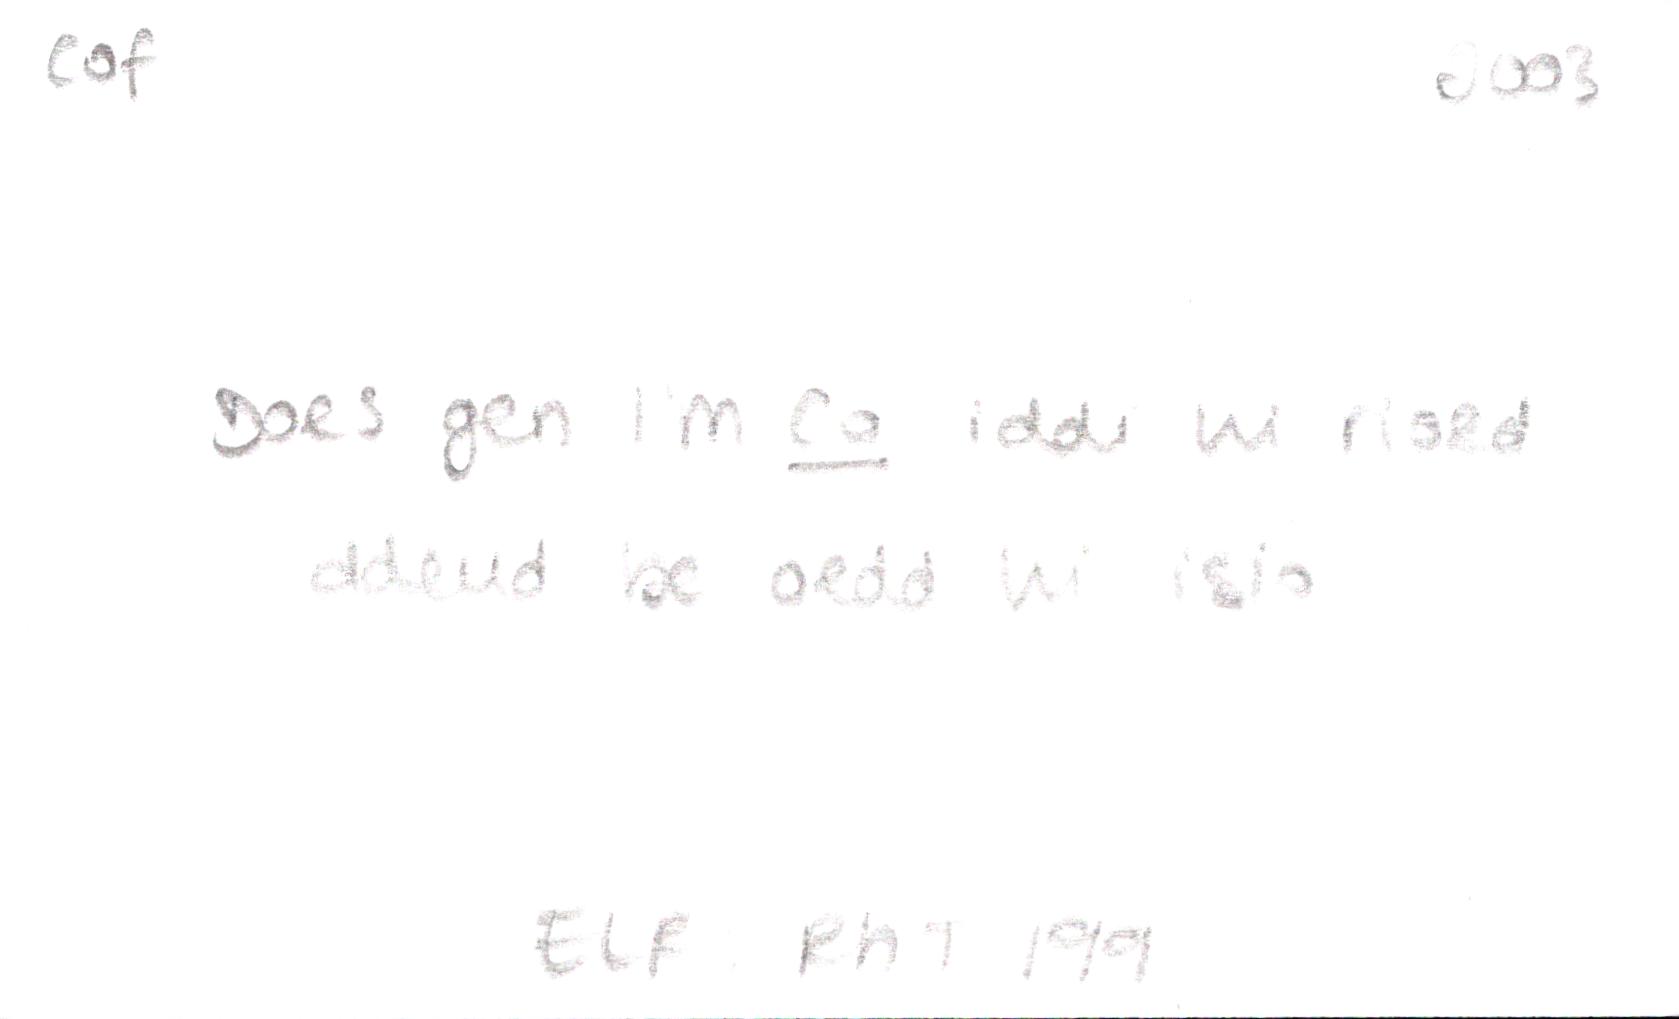 cof 2003
Does gen i'm Co iddi hi rioed
ddeud be oedd hi isio
ELF: RhT 199